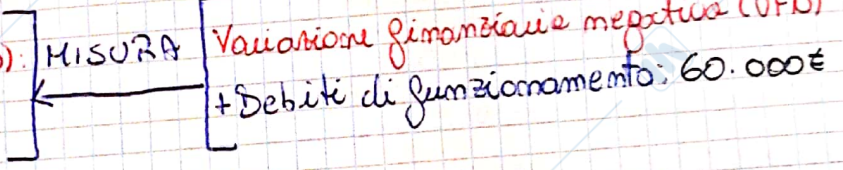 ): MISURA
Variazione finanziaria negativa (VFN)
+ Debiti di funzionamento: 60.000€